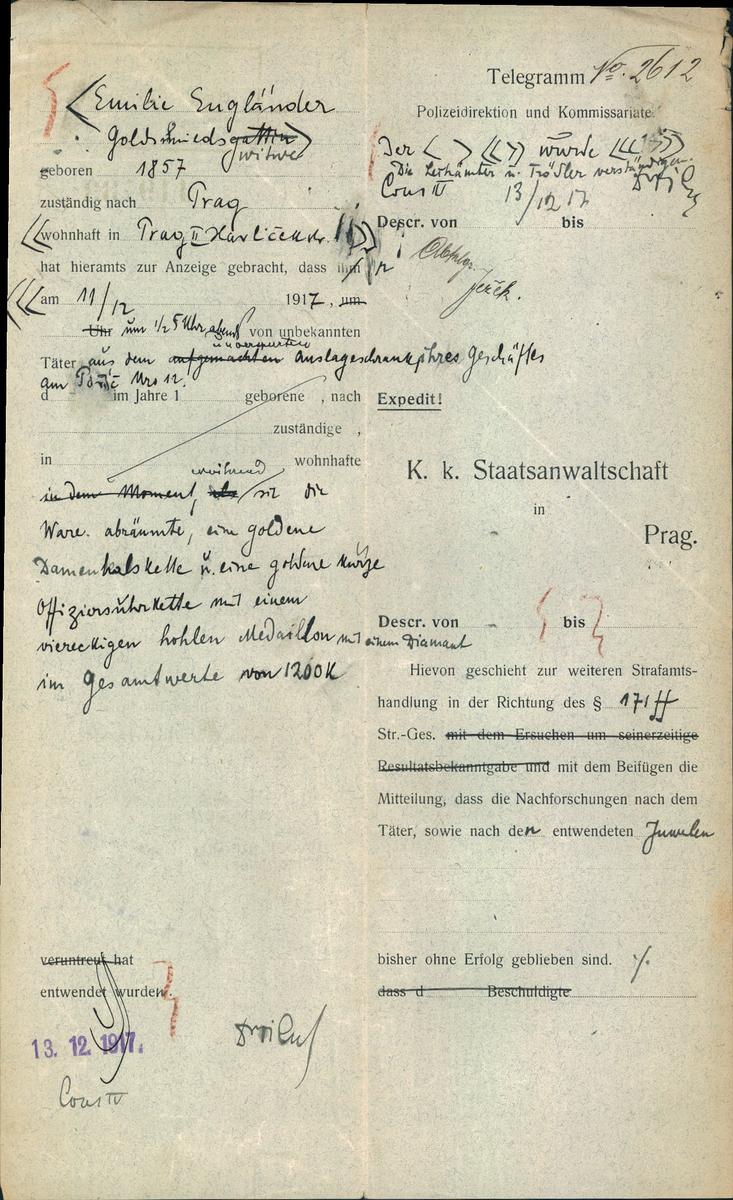 Emilie Engländer
Goldschmiedsgattin
witwe
geboren 1857
zuständig nach Prag
wohnhaft in Prag II Havlíčekstr. 11
hat hieramts zur Anzeige gebracht, dass ihr
am 11/12 1917, um
Uhr um 1/2 5 Uhr abend von unbekannten
unversperrten
Täter aus dem aufgemachten Auslageschrank ihres Geschäftes
am Poříč Nro 12.
d im Jahre 1 geborene , nach
zuständige ,
in wohnhafte
während
in dem Moment, als sie die
Ware abräumte, eine goldene
Damenhalskette u. eine goldene kurze
Offiziersuhrkette mit einem
viereckigen hohlen Medaillon mit einem Diamant
im Gesamtwerte von 1200 K
veruntreut hat
entwendet wurden.
13. 12. 1917.
Cons IV
Telegramm No. 2612
Polizeidirektion und Kommissariate
Der < > << >> wurde <<<
Die Leihämter u. Trödler verständigen.
Cons IV 13/12 17
Descr. von bis
Ježek.
Expedit!
K. k. Staatsanwaltschaft
in
Prag.
Descr. von bis
Hievon geschieht zur weiteren Strafamts-
handlung in der Richtung des § 171 ff
Str.-Ges. mit dem Ersuchen um seinerzeitige
Resultatsbekanntgabe und mit dem Beifügen die
Mitteilung, dass die Nachforschungen nach dem
Täter, sowie nach den entwendeten Juwelen
bisher ohne Erfolg geblieben sind. ./.
dass d Beschuldigte